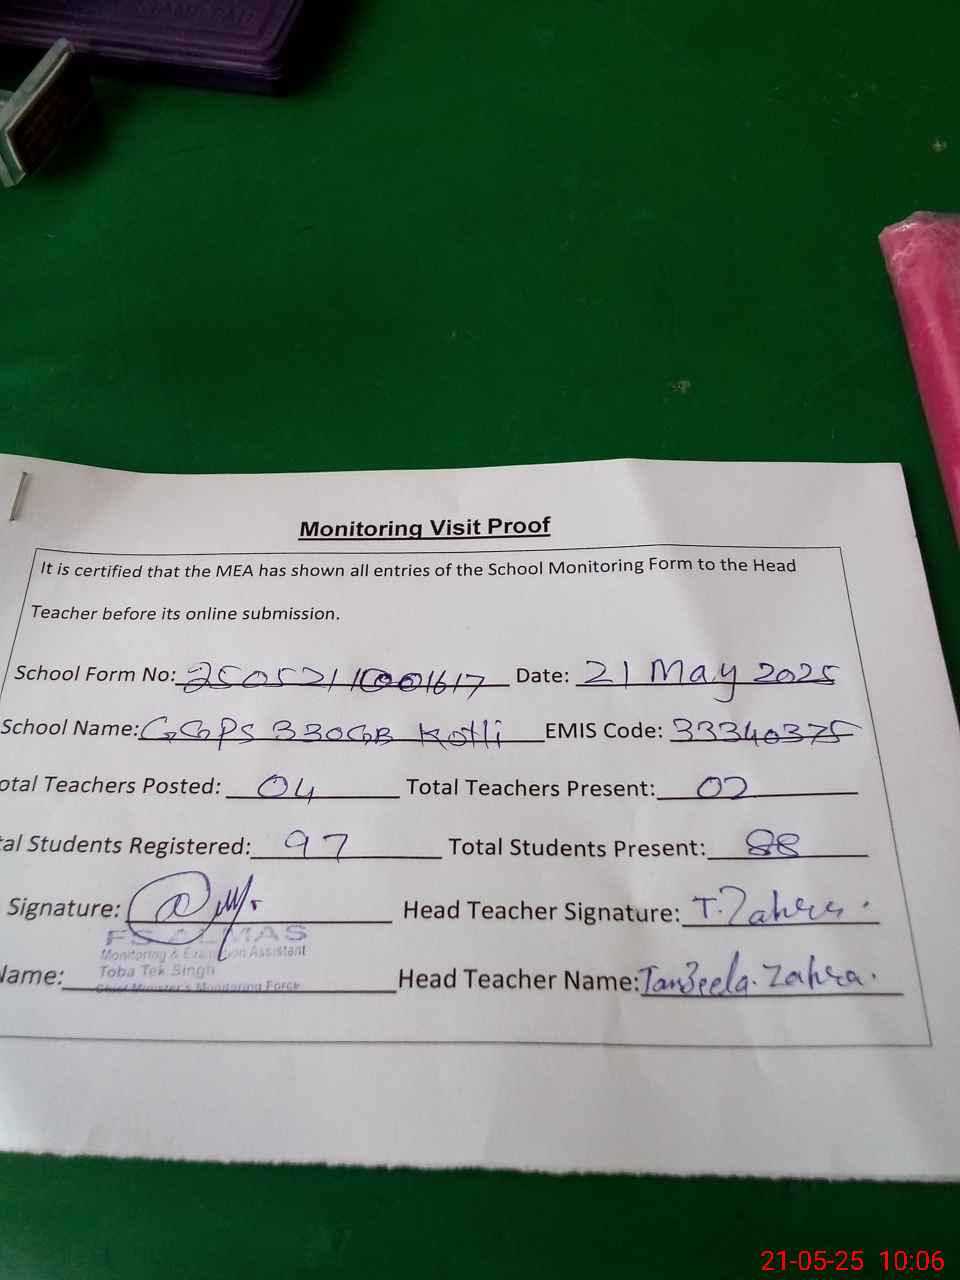 Monitoring Visit Proof
It is certified that the MEA has shown all entries of the School Monitoring Form to the Head
Teacher before its online submission.
School Form No: 25052111001617 Date: 21 May 2025
School Name: GGPS 330GB Kotli EMIS Code: 33340375
otal Teachers Posted: 04 Total Teachers Present: 02
tal Students Registered: 97 Total Students Present: 88
Signature: Head Teacher Signature: T. Zahra.
Monitoring & Evaluation Assistant
Toba Tek Singh
Name: Head Teacher Name: Tanzeela. Zahra.
Chief Minister's Monitoring Force
21-05-25 10:06